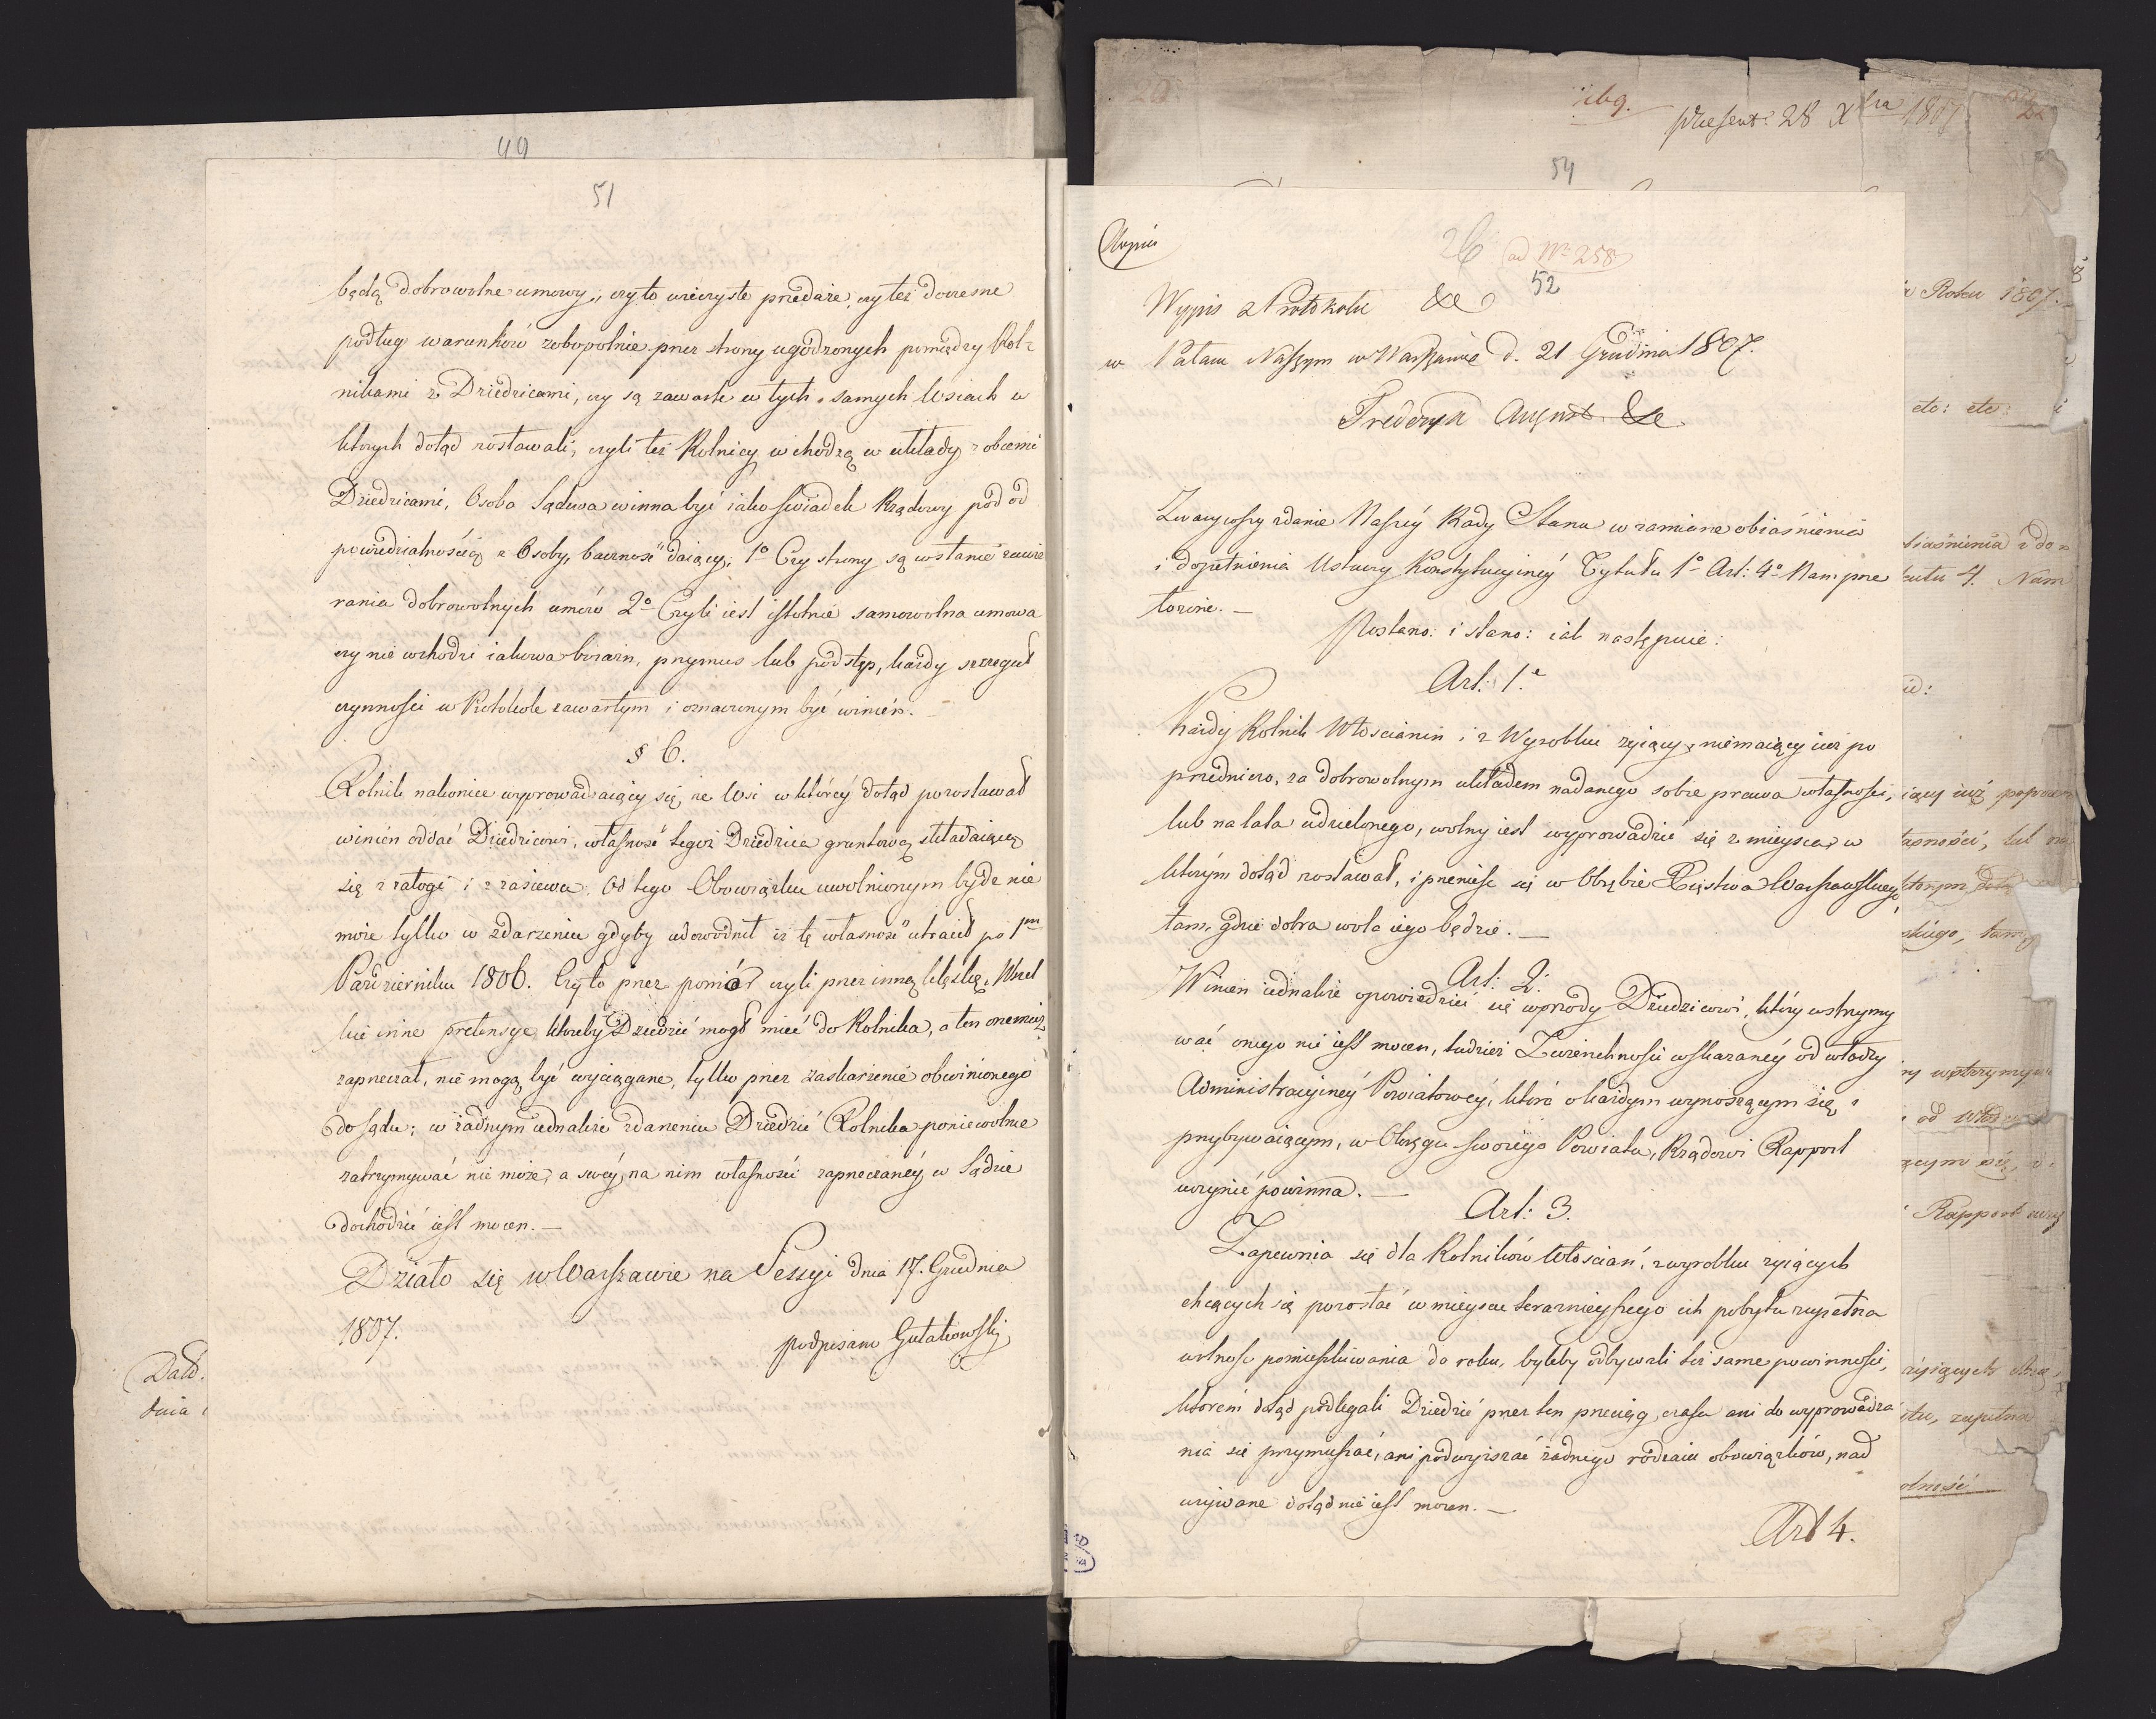 49
51
będą dobrowolne umowy, czyto wieczyste przedaże, czy też doczesne
podług warunków zobopolnie przez strony ugodzonych pomiędzy Rol-
nikami z Dziedzicami, czy są zawarte w tych samych Wsiach w
których dotąd zostawali, czyli też Rolnicy wchodzą w układy z obcemi
Dziedzicami, Osoba Sądowa winna być iako świadek Rządowy pod od
powiedzialnością z Osoby, baczność daiący, 1o Czy strony są wstanie zawie
rania dobrowolnych umów 2o Czyli iest istotnie samowolna umowa
czy nie wchodzi iakowa boiaźń, przymus lub podstęp, każdy szczeguł
czynności w Protokole zawartym i oznaczonym być winien. –
§ 6.
Rolnik nakoniec wyprowadzaiący się, ze Wsi w którey dotąd pozostawał
winien oddać Dziedzicowi, własność tegoż Dziedzica gruntową składaiącą
się z załogi i z zasiewu. Od tego Obowiązku uwolnionym bydz nie
może tylko w zdarzeniu gdyby udowodnił iż tę własność utracił po 1m
Październiku 1806. Czyto przez pomór czyli przez inną klęskę. Wszel
kie inne pretensye, któreby Dziedzic mogł mieć do Rolnika, a ten onemuż
zapreczał, nie mogą być wyciągane, tylko przez zaskarżenie obwinionego
do sądu; w żadnym iednakże zdarzeniu Dziedzic Rolnika poniewolnie
zatrzymywać nie może, a swéy na nim własności zaprzeczanéy w Sądzie
dochodzić iest mocen. —
Działo się w Warszawie na Sessyi dnia 17. Grudnia
1807.
podpisano Gutakowski
Dału.
dnia
zbg.
present: 28 Xbra 1807
54
Kopia
26 ad Nr 258
52
Wypis z Protokułu &c
w Pałacu Naszym w Warszawie d. 21 Grudnia 1807.
Frederyk August &c
Zważywszy zdanie Naszéy Rady Stanu w zamiarze obiaśnienia
i dopełnienia Ustawy Konstytucyinéy Tytułu 1o Art: 4o Nam prze
łożone. —
Postano: i stano: iak następuie:
Art: 1.e
Każdy Rolnik Włościanin i z Wyrobku żyiący, niemaiący iuż po
przedniczo, za dobrowolnym układem nadanego sobie prawa własności,
lub na lata udzielonego, wolny iest wyprowadzić się z mieysca, w
którym dotąd zostawał, i przenieść się w Obrębie Xięstwa Warszawskiego
tam, gdzie dobra wola iego będzie. —
Art: 2.
Winien iednakże opowiedzieć się wprzódy Dziedzicowi, który wstrzymy
wać onego nie iest mocen, tudzież Zwierzchności wskazanéy od władzy
Administracyinéy Powiatowéy, która o każdym wynoszącym się, i
przybywaiącym, w Okręgu swoiego Powiatu, Rządowi Rapport
uczynić powinna. —
Art: 3.
Zapewnia się dla Rolników Włościan, z wyrobku żyiących
chcących się pozostać w mieyscu terazniéyszego ich pobytu zupełna
wolność pomieszkiwania do roku, byleby odbywali też same powinności,
którém dotąd podlegali Dziedzic przez ten przeciąg czasu ani do wyprowadza
nia się przymuszać, ani podwyższać żadnego rodzaiu obowiązków, nad
używane dotąd nie iest mocen. —
Art 4.
Roku 1807.
etc: etc:
biaśnienia i do
tułu 4. Nam
ie:
iący iuż poprzed
łasności, lub na
którym dotą
skiego, tam
ry wstrzymy
od Władz
zącym się, i
Rapport uczy
żyiących chcą
ytu, zupełna
olności